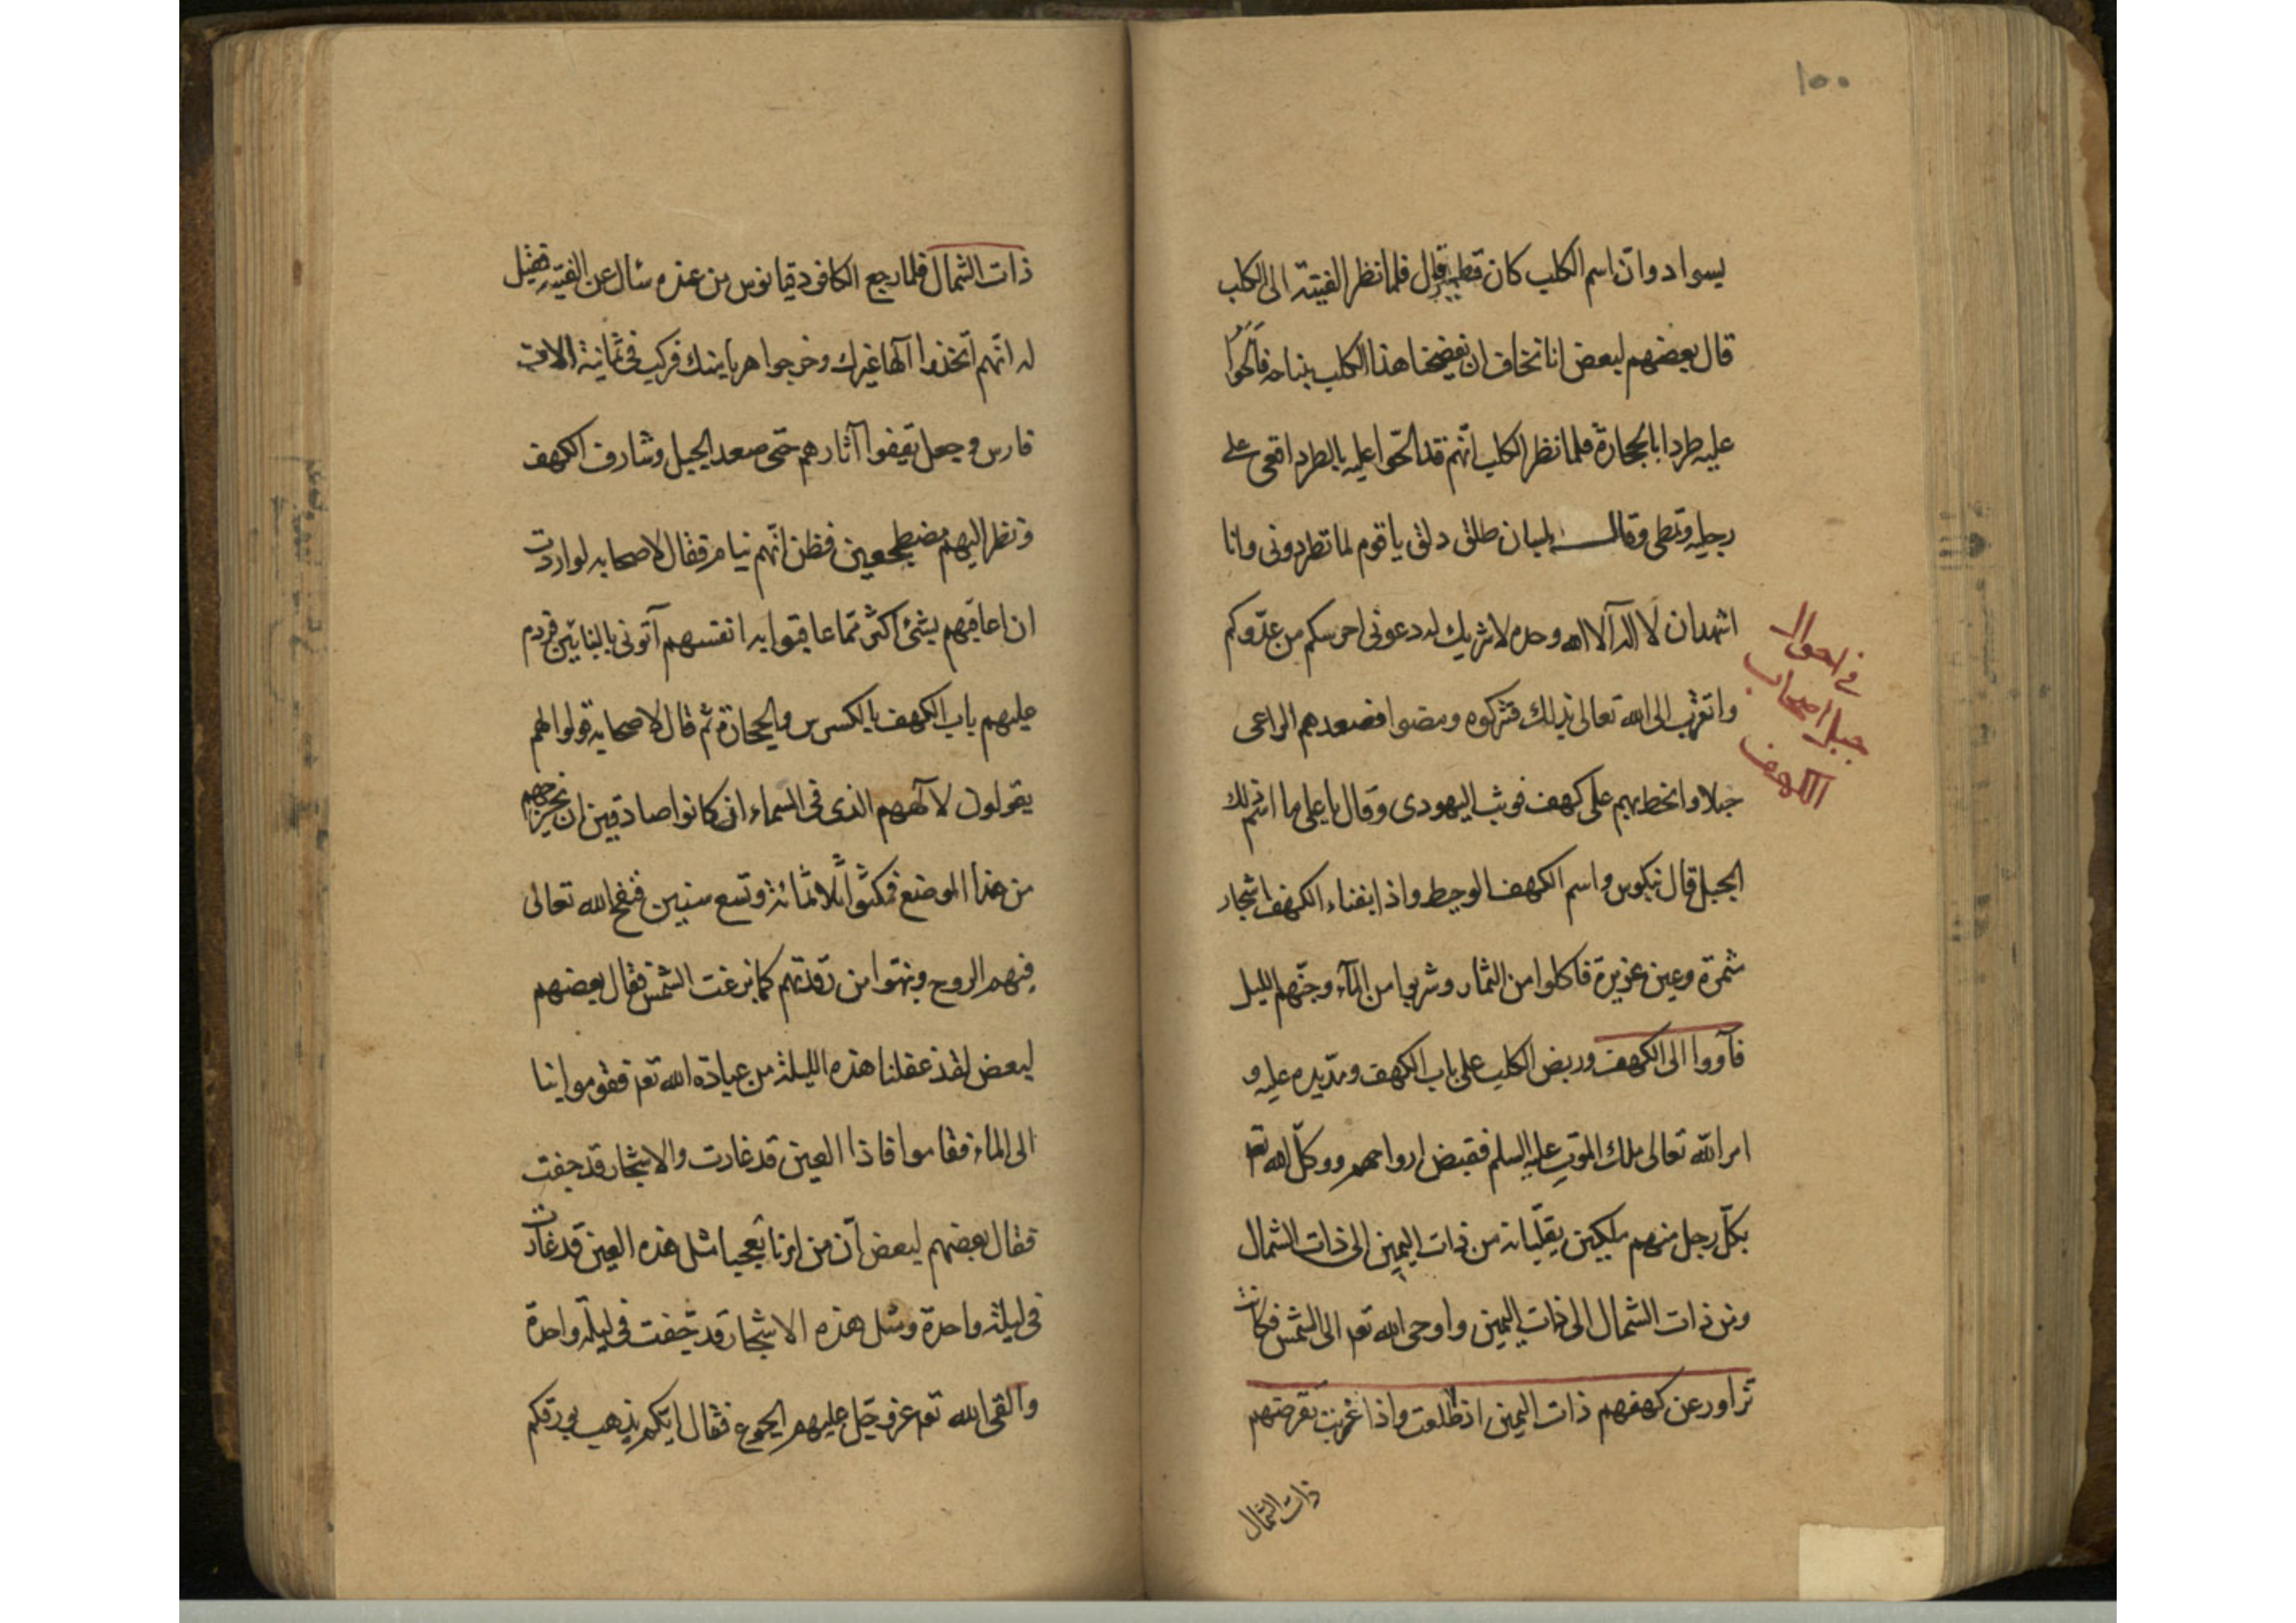 ١٥٠
بسواد وان اسم الكلب كان قطمير قال فلما نظر الفتية الى الكلب
قال بعضهم لبعض انا نخاف ان يفضحنا هذا الكلب بنباحه فالحّوا
عليه طردا بالحجارة فلما نظر الكلب انّهم قد الحّوا عليه بالطرد اقعى على
رجليه وتمطى وقال بلسان طلق دلق يا قوم لما تطردونى وانا
اشهد ان لا اله الا الله وحده لا شريك له دعونى احرسكم من عدّوكم
واتقرّب الى الله تعالى بذلك فتركوه ومضوا فصعد بهم الراعى
جبلا وانحط بهم على كهف فوثب اليهودى وقال يا على ما اسم ذلك
الجبل قال نيكوس واسم الكهف الوحيط واذا بفناء الكهف اشجار
ثمرة وعين غزيرة فاكلوا من الثمار وشربوا من المآء وجنّهم الليل
فآووا الى الكهف وربض الكلب على باب الكهف ومدّ يديه عليه و
امر الله تعالى ملك الموت عليه السلم فقبض ارواحهم ووكّل الله تعه
بكلّ رجل منهم ملكين يقلّبانه من ذات اليمين الى ذات الشمال
ومن ذات الشمال الى ذات اليمين واوحى الله تعه الى الشمس فكانت
تزاور عن كهفهم ذات اليمين اذ طلعت واذا غربت تقرضهم
ذات الشمال
فى احوال
جبل اصحاب
الكهف
ذات الشمال فلما رجع الكافر دقيانوس من عذره سئال عن الفتية فقيل
له انّهم اتخذوا آلها غيرك وخرجوا هربا منك فركب فى ثمانية الاف
فارس وجعل يقيفوا آثارهم حتى صعد الجبل وشارف الكهف
ونظر اليهم مضطجعين فظن انّهم نيام فقال لاصحابه لو اردت
ان اعاقبهم بشئ اكثر ممّا عاقبوا به انفسهم آتونى بالبنائين فردم
عليهم باب الكهف بالكسرس والحجارة ثم قال لاصحابه قولوا لهم
يقولون لالههم الذى فى السماء ان كانوا صادقين ان يخرجهم
من هذا الموضع فمكثوا ثلاثمائة وتسع سنين فنفخ الله تعالى
فيهم الروح ونبّهوا من رقدتهم كما بزغت الشمس فقال بعضهم
لبعض لقد غفلنا هذه الليلة من عبادة الله تعه فقوموا بنا
الى الماء فقاموا فاذا العين قد غارت والاشجار قد جفت
فقال بعضهم لبعض آن من امرنا لعجبا مثل هذه العين قد غارت
فى ليلة واحدة ومثل هذه الاشجار قد جّفت فى ليلة واحدة
والقى الله تعه عز وجل عليهم الجوع فقال ايّكم يذهب بورقكم